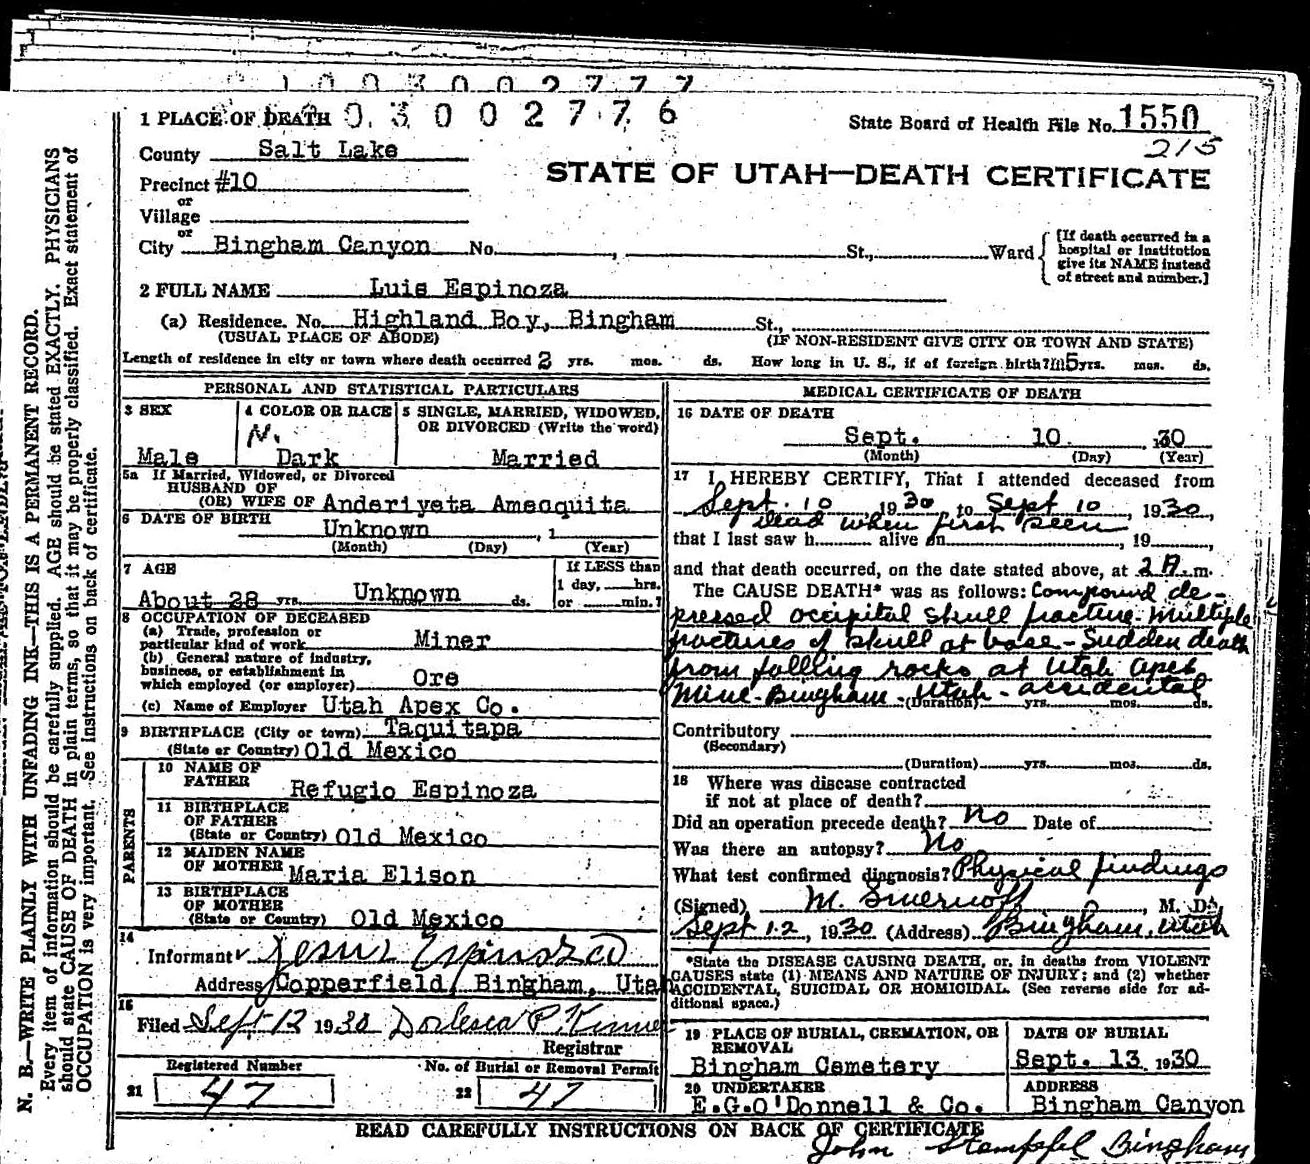 1 0 0 3 0 0 2 7 7 7
0 3 0 0 2 7 7 6
1 PLACE OF DEATH
State Board of Health File No. 1550
215
County Salt Lake
STATE OF UTAH—DEATH CERTIFICATE
Precinct #10
or
Village
or
City Bingham Canyon No. , St., Ward
[If death occurred in a hospital or institution give its NAME instead of street and number.]
2 FULL NAME Luis Espinoza
(a) Residence. No. Highland Boy, Bingham St.,
(USUAL PLACE OF ABODE) (IF NON-RESIDENT GIVE CITY OR TOWN AND STATE)
Length of residence in city or town where death occurred 2 yrs. mos. ds. How long in U. S., if of foreign birth? 5 yrs. mos. ds.
PERSONAL AND STATISTICAL PARTICULARS
3 SEX
Male
4 COLOR OR RACE
N.
Dark
5 SINGLE, MARRIED, WIDOWED,
OR DIVORCED (Write the word)
Married
5a If Married, Widowed, or Divorced
HUSBAND OF
(OR) WIFE OF Anderiyeta Amesquita
6 DATE OF BIRTH Unknown , 1
(Month) (Day) (Year)
7 AGE
About 28 yrs. Unknown mos. ds.
If LESS than
1 day, hrs.
or min.?
8 OCCUPATION OF DECEASED
(a) Trade, profession or
particular kind of work Miner
(b) General nature of industry,
business, or establishment in
which employed (or employer) Ore
(c) Name of Employer Utah Apex Co.
9 BIRTHPLACE (City or town) Taquitapa
(State or Country) Old Mexico
PARENTS
10 NAME OF
FATHER Refugio Espinoza
11 BIRTHPLACE
OF FATHER
(State or Country) Old Mexico
12 MAIDEN NAME
OF MOTHER Maria Elison
13 BIRTHPLACE
OF MOTHER
(State or Country) Old Mexico
14
Informant Jesus Espinoza
Address Copperfield, Bingham, Utah
15
Filed Sept 12 1930 P. Kinner
Registrar
Registered Number
21 47
No. of Burial or Removal Permit
22 47
MEDICAL CERTIFICATE OF DEATH
16 DATE OF DEATH
Sept. 10 30
(Month) (Day) (Year)
17 I HEREBY CERTIFY, That I attended deceased from
Sept. 10, 1930, to Sept 10, 1930,
dead when first seen
that I last saw h alive on , 19 ,
and that death occurred, on the date stated above, at 2 A. m.
The CAUSE DEATH* was as follows: Compound de-
pressed occipital skull fracture - Multiple
fractures of skull at base - Sudden death
from fallling rocks at Utah Apex
Mine - Bingham - Utah - accidental
(Duration) yrs. mos. ds.
Contributory
(Secondary)
(Duration) yrs. mos. ds.
18 Where was disease contracted
if not at place of death?
Did an operation precede death? No Date of
Was there an autopsy? No
What test confirmed diagnosis? Physical findings
(Signed) M. Smernoff, M. D.
Sept 12, 1930 (Address) Bingham, Utah
*State the DISEASE CAUSING DEATH, or, in deaths from VIOLENT
CAUSES state (1) MEANS AND NATURE OF INJURY; and (2) whether
ACCIDENTAL, SUICIDAL OR HOMICIDAL. (See reverse side for ad-
ditional space.)
19 PLACE OF BURIAL, CREMATION, OR
REMOVAL
Bingham Cemetery
DATE OF BURIAL
Sept. 13 1930
20 UNDERTAKER
E.G.O'Donnell & Co.
ADDRESS
Bingham Canyon
READ CAREFULLY INSTRUCTIONS ON BACK OF CERTIFICATE
John Stampfel Bingham
N. B.—WRITE PLAINLY WITH UNFADING INK—THIS IS A PERMANENT RECORD.
Every item of information should be carefully supplied. AGE should be stated EXACTLY. PHYSICIANS
should state CAUSE OF DEATH in plain terms, so that it may be properly classified. Exact statement of
OCCUPATION is very important. See instructions on back of certificate.